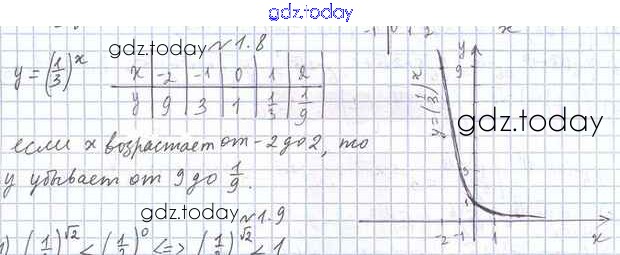 gdz.today
-1 0 1 2 x
gdz.today № 1.8
y = (1/3)^x
x | -2 | -1 | 0 | 1 | 2
y | 9 | 3 | 1 | 1/3 | 1/9
если x возрастает от -2 до 2, то
y убывает от 9 до 1/9.
y
9
y = (1/3)^x
gdz.today
3
1
-2 -1 1 x
gdz.today № 1.9
1) (1/ )^√2 < (1/ )^0 <=> (1/ )^√2 < 1